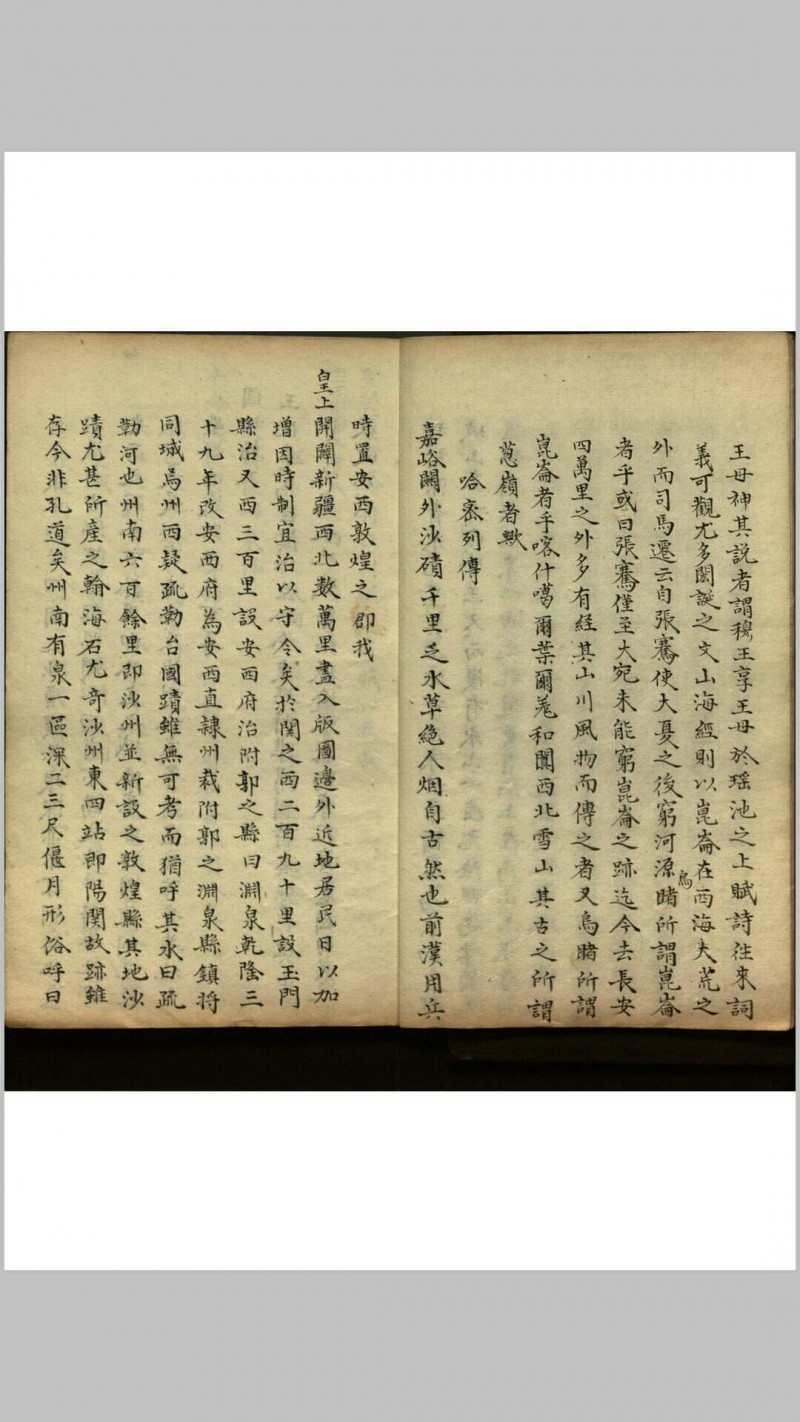 王母神其說者謂穆王享王母於瑶池之上賦詩往來詞
義可觀尤多閎誕之文山海經則以崑崙在西海大荒之
外而司馬遷云自張騫使大夏之後窮河源烏睹所謂崑崙
者乎或曰張騫僅至大宛未能窮崑崙之跡迄今去長安
四萬里之外多有經其山川風物而傳之者又烏睹所謂
崑崙者乎喀什噶爾葉爾羌和闐西北雪山其古之所謂
蔥嶺者歟
哈密列傳
嘉峪關外沙磧千里乏水草絶人烟自古然也前漢用兵
時置安西敦煌之郡我
皇上開闢新疆西北数萬里盡入版圖邊外近地居民日以加
增因時制宜治以守令矣於関之西二百九十里設玉門
縣治又西三百里設安西府治附郭之縣曰淵泉乾隆三
十九年改安西府為安西直隸州裁附郭之淵泉縣鎮將
同城焉州西疑疏勒台國蹟雖無可考而猶呼其水曰疏
勒河也州南六百餘里即沙州並新設之敦煌縣其地沙
蹟尤甚所產之翰海石尤奇沙州東四站即陽関故跡雖
存今非孔道矣州南有泉一區深二三尺偃月形俗呼曰